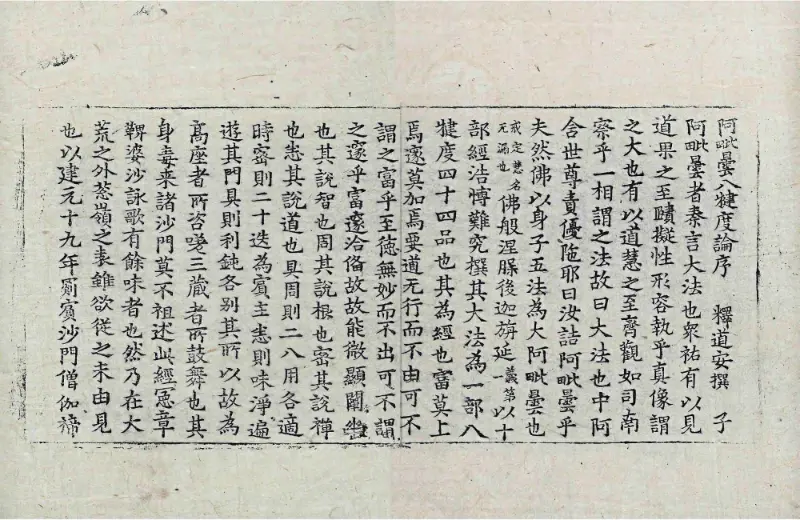 阿毗曇八犍度論序 釋道安撰 子
阿毗曇者秦言大法也衆祐有以見
道果之至賾擬性形容執乎真像謂
之大也有以道慧之至齊觀如司南
察乎一相謂之法故曰大法也中阿
含世尊責優陁耶曰汝詰阿毗曇乎
夫然佛以身子五法為大阿毗曇也
戒定慧名无漏也佛般涅槃後迦旃延義第一以十
部經浩博難究撰其大法為一部八
犍度四十四品也其為經也富莫上
焉邃莫加焉要道无行而不由可不
謂之富乎至德無妙而不出可不謂
之邃乎富邃洽俻故故能微顯闡幽
也其說智也周其說根也密其說禪
也悉其說道也具周則二八用各適
時密則二十迭為賓主悉則味淨遍
遊其門具則利鈍各別其所以故為
高座者所咨嗟三藏者所鼓舞也其
身毒來諸沙門莫不祖述此經憲章
鞞婆沙詠歌有餘味者也然乃在大
荒之外葱嶺之表雖欲從之未由見
也以建元十九年罽賓沙門僧伽褅